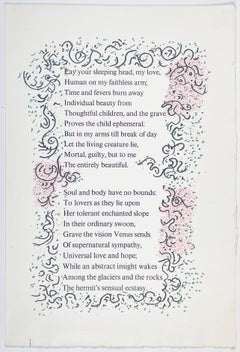 Lay your sleeping head, my love,
Human on my faithless arm;
Time and fevers burn away
Individual beauty from
Thoughtful children, and the grave
Proves the child ephemeral:
But in my arms till break of day
Let the living creature lie,
Mortal, guilty, but to me
The entirely beautiful.
Soul and body have no bounds:
To lovers as they lie upon
Her tolerant enchanted slope
In their ordinary swoon,
Grave the vision Venus sends
Of supernatural sympathy,
Universal love and hope;
While an abstract insight wakes
Among the glaciers and the rocks
The hermit's sensual ecstasy.